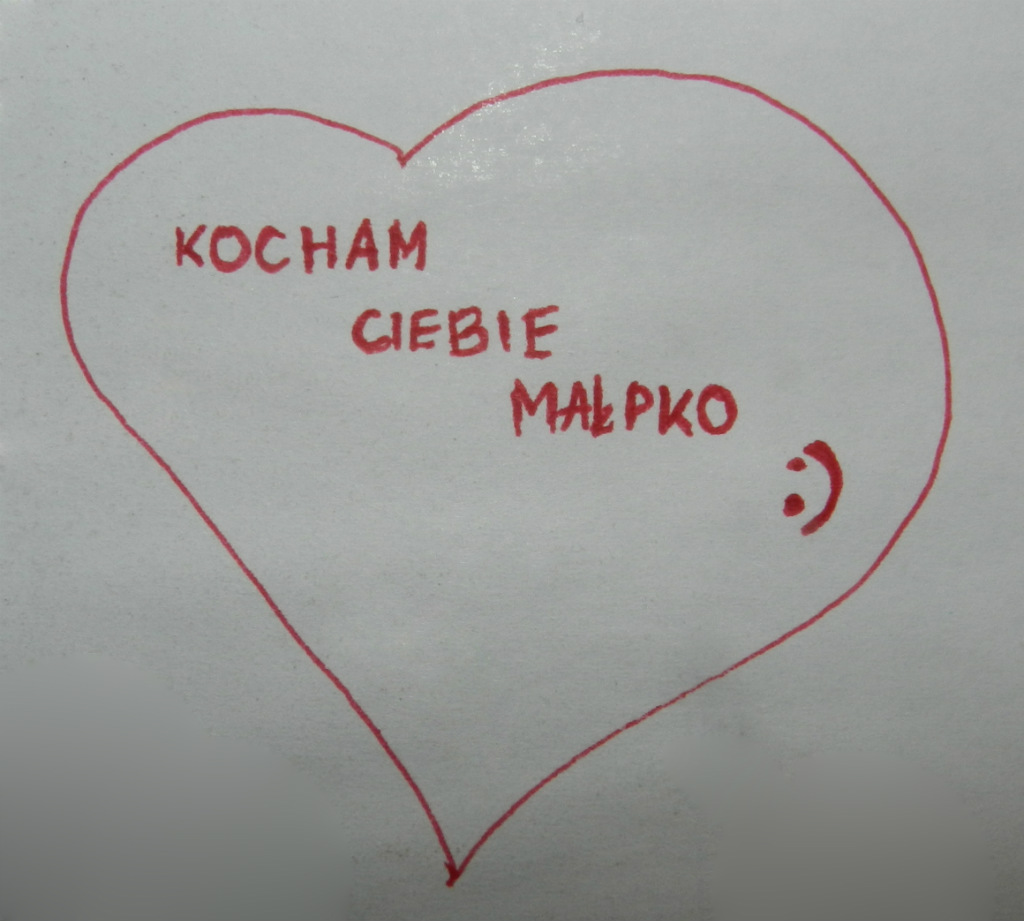 KOCHAM
CIEBIE
MAŁPKO
:)